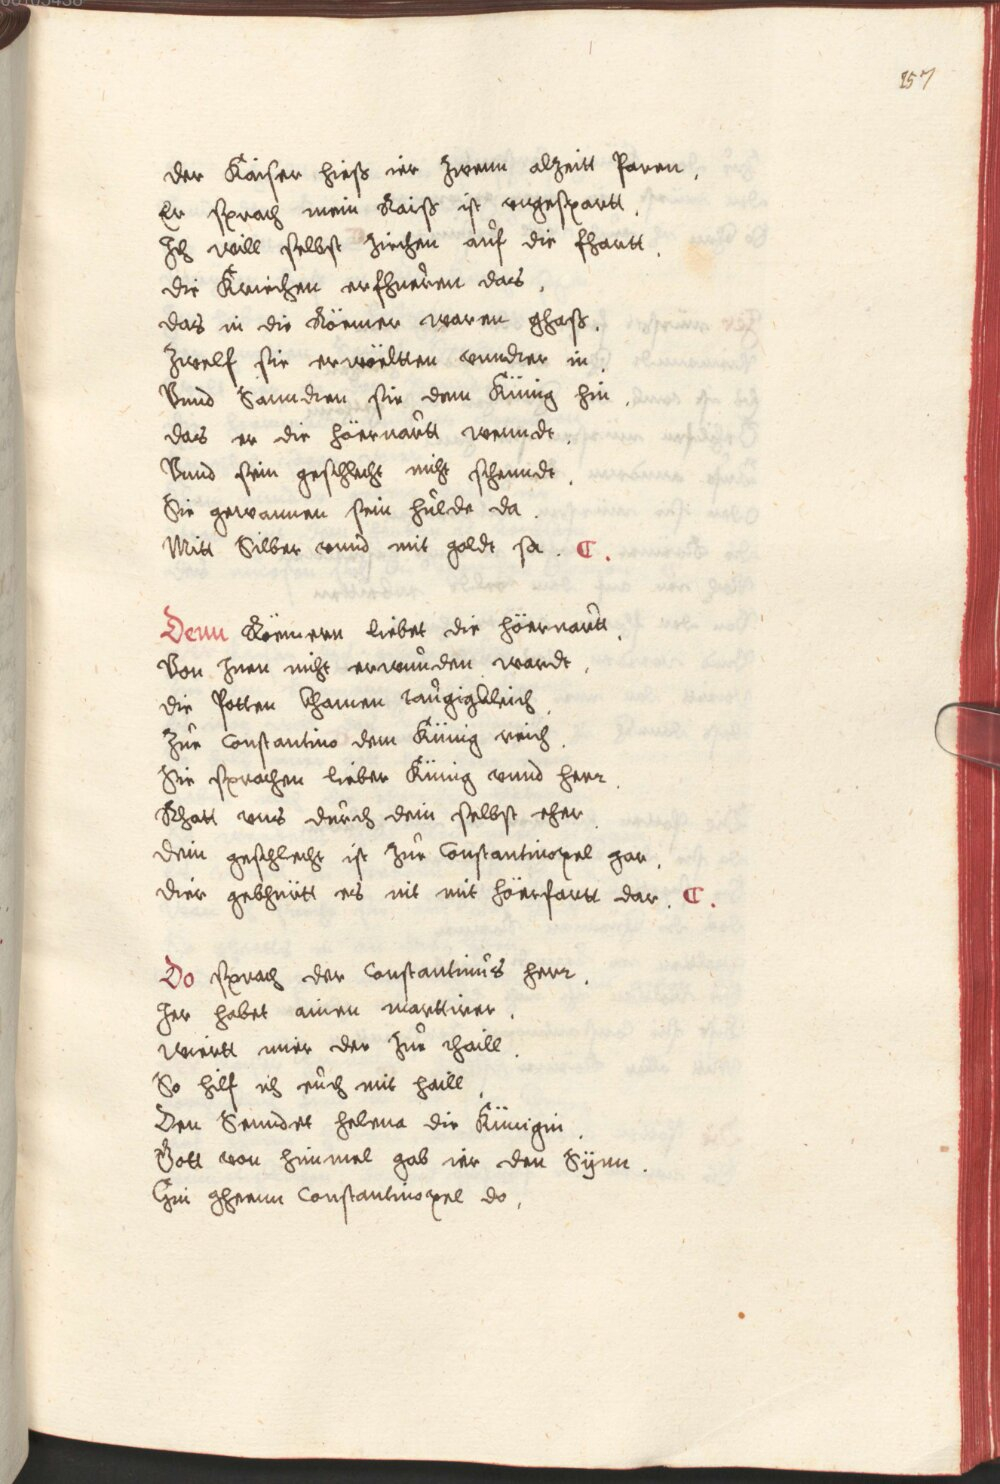 157
der Kaiser hieß ier zwenn alzeitt Paren,
Er sprach mein Raiß ist vngespartt,
Ich will selbst ziechen auf die fhartt.
die Kriechen erfhueren das,
das in die Röemer waren ghaß.
Zwelf sie erwöeltten vnndter in,
Vnnd Sanndten sie dem Künig hin,
das er die höeruartt wenndt,
Vnnd sein geschlecht nicht schenndt,
Sie gewannen sein hulde da.
Mitt Silber vnnd mit goldt sa. C.
Denn Röemern liebet die höeruartt,
Von Inen nicht erwunden wardt,
die Potten khamen taugigkleich,
Zue Constantino dem Künig reich,
Sie sprachen lieber Künig vnnd herr,
Rhatt vns durch dein selbst eher,
dein geschlecht ist Zue Constantinopel gar,
dier gebhuertt es nit mit höerfartt dar. C.
Do sprach der Constantinus herr,
Ier habet ainen marttirer,
wiertt mier der Zue thaill,
So hilf ich euch mit haill,
Den Senndet helena die Künigin,
Gott von himmel gab ier den Synn.
Hin gheenn Constantinopel do,